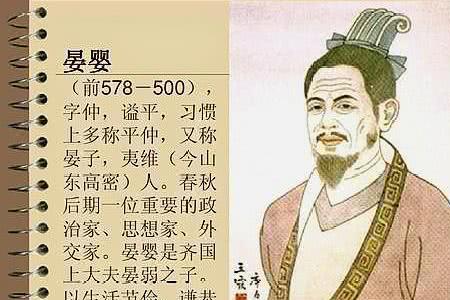 晏婴
（前578－500），
字仲，谥平，习惯
上多称平仲，又称
晏子，夷维（今山
东高密）人。春秋
后期一位重要的政
治家、思想家、外
交家。晏婴是齐国
上大夫晏弱之子。
以生活节俭，谦恭